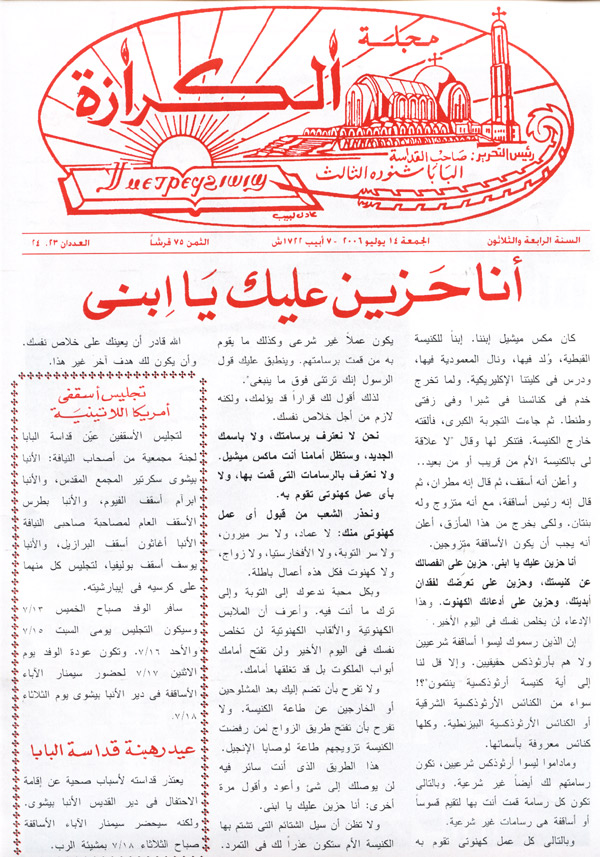 مجلة
الكرازة
رئيس التحرير: صاحب القداسة
البابا شنوده الثالث
عادل لبيب
السنة الرابعة والثلاثون
الجمعة ١٤ يوليو ٢٠٠٦ - ٧ أبيب ١٧٢٢ش
الثمن ٧٥ قرشاً
العددان ٢٣، ٢٤
أنا حزين عليك يا إبنى
كان مكس ميشيل إبننا. إبناً للكنيسة
القبطية، وُلد فيها، ونال المعمودية فيها،
ودرس فى كليتنا الإكليريكية. ولما تخرج
خدم فى كنائسنا فى شبرا وفى زفتى
وطنطا. ثم جاءت التجربة الكبرى، فألقته
خارج الكنيسة. فتنكر لها وقال "لا علاقة
لى بالكنيسة الأم من قريب أو من بعيد..
وأعلن أنه أسقف، ثم قال إنه مطران، ثم
قال إنه رئيس أساقفة، مع أنه متزوج وله
بنتان. ولكى يخرج من هذا المأزق، أعلن
أنه يجب أن يكون الأساقفة متزوجين.
أنا حزين عليك يا ابنى. حزين على انفصالك
عن كنيستك، وحزين على تعرّضك لفقدان
أبديتك. وحزين على أدعائك الكهنوت. وهذا
الإدعاء لن يخلص نفسك فى اليوم الأخير.
إن الذين رسموك ليسوا أساقفة شرعيين
ولا هم بأرثوذكس حقيقيين. وإلا فل لنا
إلى أية كنيسة أرثوذكسية ينتمون"؟!
سواء من الكنائس الأرثوذكسية الشرقية
أو الكنائس الأرثوذكسية البيزنطية. وكلها
كنائس معروفة بأسمائها.
وماداموا ليسوا أرثوذكس شرعيين، تكون
رسامتهم لك أيضاً غير شرعية. وبالتالى
تكون كل رسامة قمت أنت بها لتقيم قسوساً
أو أساقفة هى رسامات غير شرعية.
وبالتالى كل عمل كهنوتى تقوم به
يكون عملاً غير شرعى وكذلك ما يقوم
به من قمت برسامتهم. وينطبق عليك قول
الرسول إنك ترتئى فوق ما ينبغى".
لذلك أقول لك قراراً قد يؤلمك، ولكنه
لازم من أجل خلاص نفسك.
نحن لا نعترف برسامتك، ولا باسمك
الجديد، وستظل أمامنا أنت ماكس ميشيل.
ولا نعترف بالرسامات التى قمت بها، ولا
بأى عمل كهنوتى تقوم به.
ونحذر الشعب من قبول أى عمل
كهنوتى منك: لا عماد، ولا سر ميرون،
ولا سر التوبة، ولا الأفخارستيا، ولا زواج،
ولا كهنوت فكل هذه أعمال باطلة.
وبكل محبة ندعوك إلى التوبة وإلى
ترك ما أنت فيه. وأعرف أن الملابس
الكهنوتية والألقاب الكهنوتية لن تخلص
نفسك فى اليوم الأخير ولن تفتح أمامك
أبواب الملكوت بل قد تغلقها أمامك.
ولا تفرح بأن تضم إليك بعد المشلوحين
أو الخارجين عن طاعة الكنيسة. ولا
تفرح بأن تفتح طريق الزواج لمن رفضت
الكنيسة تزويجهم طاعة لوصايا الإنجيل.
هذا الطريق الذى أنت سائر فيه
لن يوصلك إلى شئ وأعود وأقول مرة
أخرى: أنا حزين عليك يا ابنى.
ولا تظن أن سيل الشتائم التى تشتم بها
الكنيسة الأم ستكون عذراً لك فى التمرد.
الله قادر أن يعينك على خلاص نفسك.
وأن يكون لك هدف آخر غير هذا.
تجليس أسقفى
أمريكا اللاتينية
لتجليس الأسقفين عيّن قداسة البابا
لجنة مجمعية من أصحاب النيافة: الأنبا
بيشوى سكرتير المجمع المقدس، والأنبا
ابرآم أسقف الفيوم، والأنبا بطرس
الأسقف العام لمصاحبة صاحبى النيافة
الأنبا أغاثون أسقف البرازيل، والأنبا
يوسف أسقف بوليفيا، لتجليس كل منهما
على كرسيه فى إيبارشيته.
سافر الوفد صباح الخميس ٧/١٣
وسيكون التجليس يومى السبت ٧/١٥
والأحد ٧/١٦. وتكون عودة الوفد يوم
الاثنين ٧/١٧ لحضور سيمنار الآباء
الأساقفة فى دير الأنبا بيشوى يوم الثلاثاء
٧/١٨.
عيد رهبنة قداسة البابا
يعتذر قداسته لأسباب صحية عن إقامة
الاحتفال فى دير القديس الأنبا بيشوى.
ولكنه سيحضر سيمنار الآباء الأساقفة
صباح الثلاثاء ٧/١٨ بمشيئة الرب.